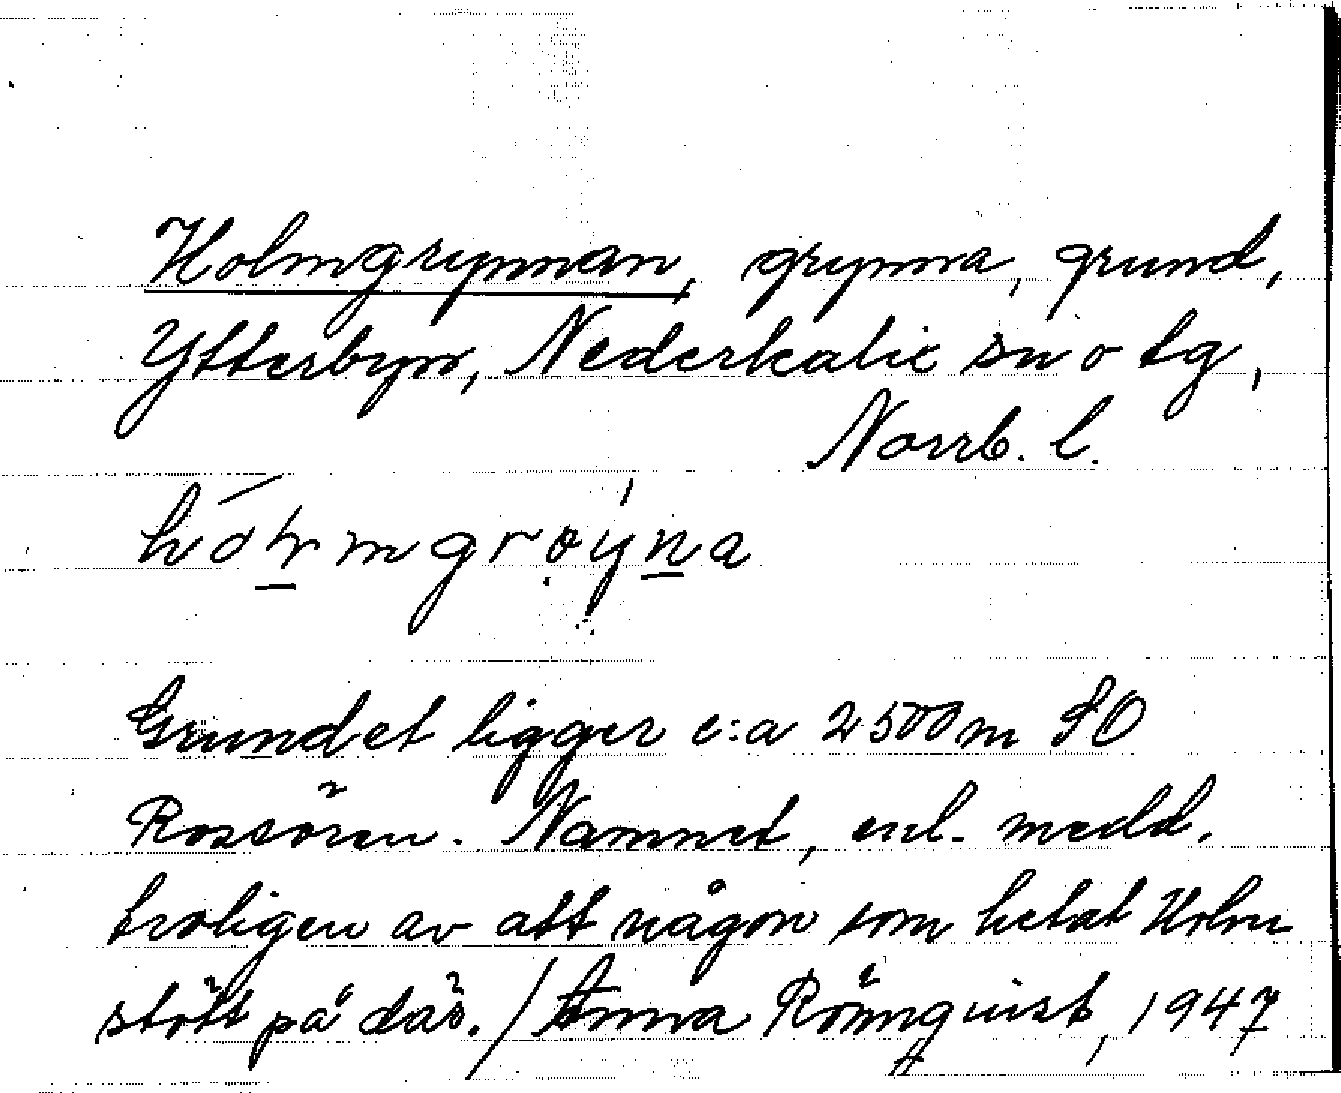 Holmgrynnan, grynna, grund,
Ytterbyn, Nederkalix sn o tg,
Norrb. l.
Grundet ligger c:a 2500m SO
Rossören. Namnet, enl. medd.
troligen av att någon som hetat Holm
stött på där. / Anna Rönnquist, 1947